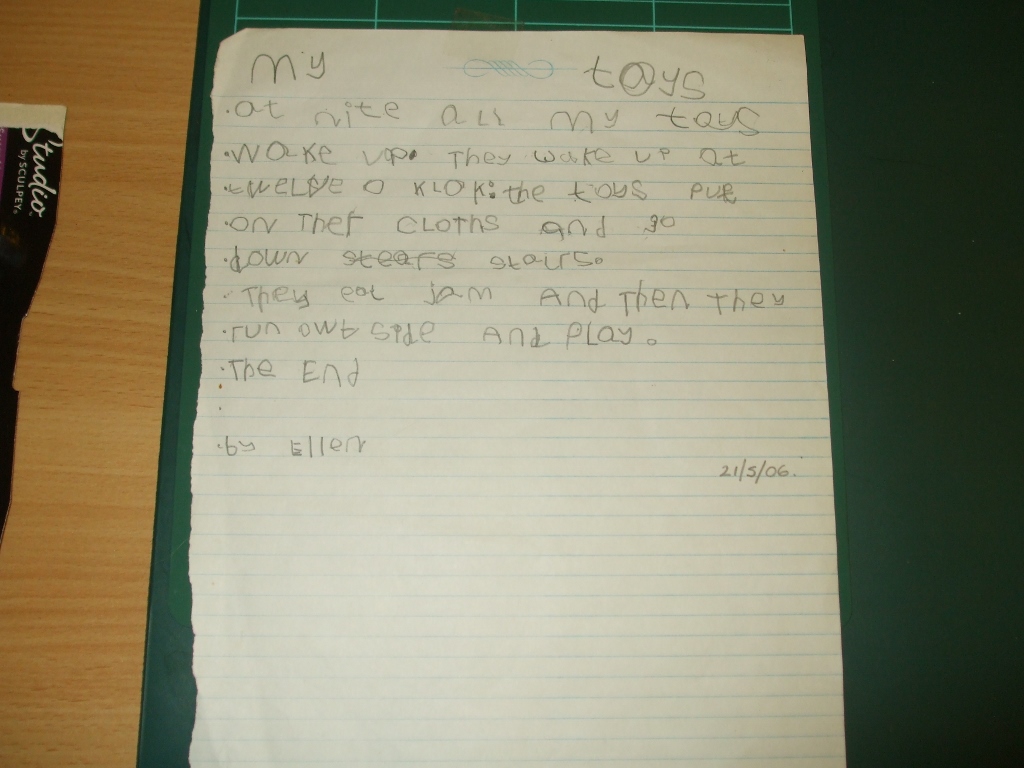 My toys
.at nite all my toys
.wake up. They wake up at
.twelve o klok: the toys put
.on Ther CLOTHS and go
.down stears stairs.
.They eat jam And Then They
.run owt side And PLAY.
.The End
.
.
.by Ellen
21/5/06.
Studio
by SCULPEY®